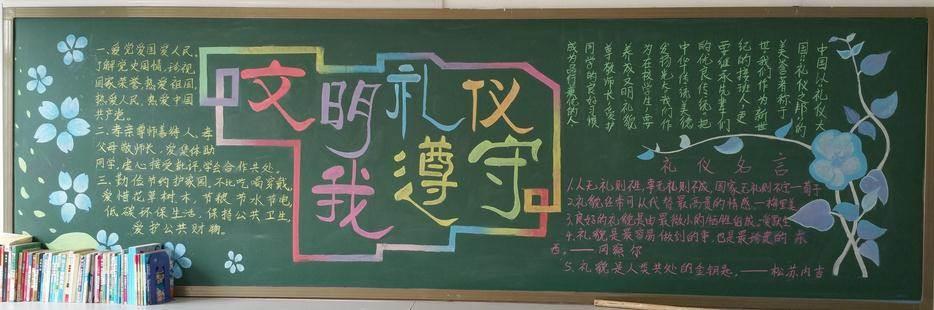 一、爱党爱国爱人民,
了解党史国情,珍视
国家荣誉,热爱祖国,
热爱人民,热爱中国
共产党。
二、孝亲尊师善待人,孝
父母敬师长,爱集体助
同学,虚心接受批评,学会合作共处。
三、勤俭节约护家园,不比吃喝穿戴,
爱惜花草树木,节粮节水节电,
低碳环保生活,保持公共卫生,
爱护公共财物。
文明礼仪
我遵守
中国以“礼仪大
国”“礼仪之邦”的
美誉著称于
世,我们作为新世
纪的接班人,更
要继承先辈们
的优良传统,把
中华传统美德
发扬光大,我们作
为在校学生,要
养成文明礼貌
尊敬师长,爱护
同学的良好习惯
成为品行兼优的人
礼仪名言
1.人无礼则不生,事无礼则不成,国家无礼则不宁—荀子
2.礼貌经常可以代替最高贵的情感—梅里美
3.良好的礼貌是由最微小的牺牲组成—爱默生
4.礼貌是最容易做到的事,也是最珍贵的东
西。——冈察尔
5.礼貌是人类共处的金钥匙。——松苏内吉